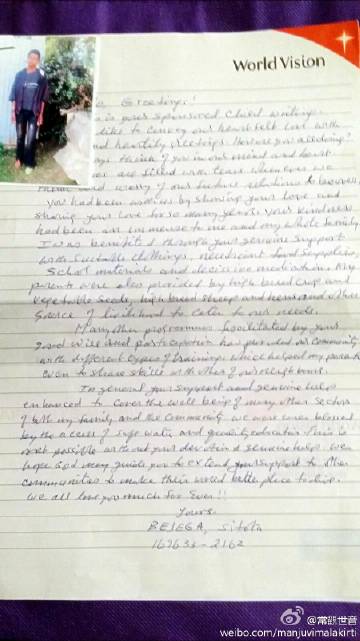 World Vision
Greetings!
is your sponsored child writing
like to convey our heartfelt love with
and heartily greetings. How are you all doing?
think of you in our mind and heart
are filled with tears whenever we
and worry of our future relations to
You had been with us by showing your love and
sharing your love for so many years. Your kindness
had been an immense to me and my whole family.
I was benefited through your genuine support
with suitable clothings, food supplies,
School materials and decisive medication. My
parents were also provided by high breed crop and
vegetable seeds, high breed sheep and hens and other
source of livelihood to cater to our needs.
Many other programmes facilitated by your
good will and participation has provided our community
with different types of trainings which helped my parents
even to share skills with other of our neighbours.
In general your support and genuine help
enhanced to cover the well being of many other sectors
of both my family and the community. We were even blessed
by the access of safe water and quality education. This is
not possible without your devotion & genuine help. We
hope God may guide you to extend your support to other
communities to make their world better place to live.
We all love you much for ever!!
Yours.
BEJEGA, Sitota
167633-2162
@常觀世音
weibo.com/manjuvimalakirti